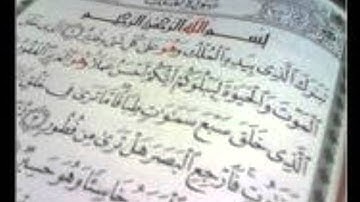 بِسْمِ اللَّهِ الرَّحْمَٰنِ الرَّحِيمِ
تَبَارَكَ الَّذِي بِيَدِهِ الْمُلْكُ وَهُوَ عَلَىٰ كُلِّ شَيْءٍ
الْمَوْتَ وَالْحَيَاةَ لِيَبْلُوَكُمْ أَيُّكُمْ أَحْسَنُ عَمَلًا وَهُوَ الْعَزِيزُ الْغَفُورُ
الَّذِي خَلَقَ سَبْعَ سَمَاوَاتٍ طِبَاقًا مَا تَرَىٰ فِي خَلْقِ
فَارْجِعِ الْبَصَرَ هَلْ تَرَىٰ مِنْ فُطُورٍ
خَاسِئًا وَهُوَ حَسِيرٌ